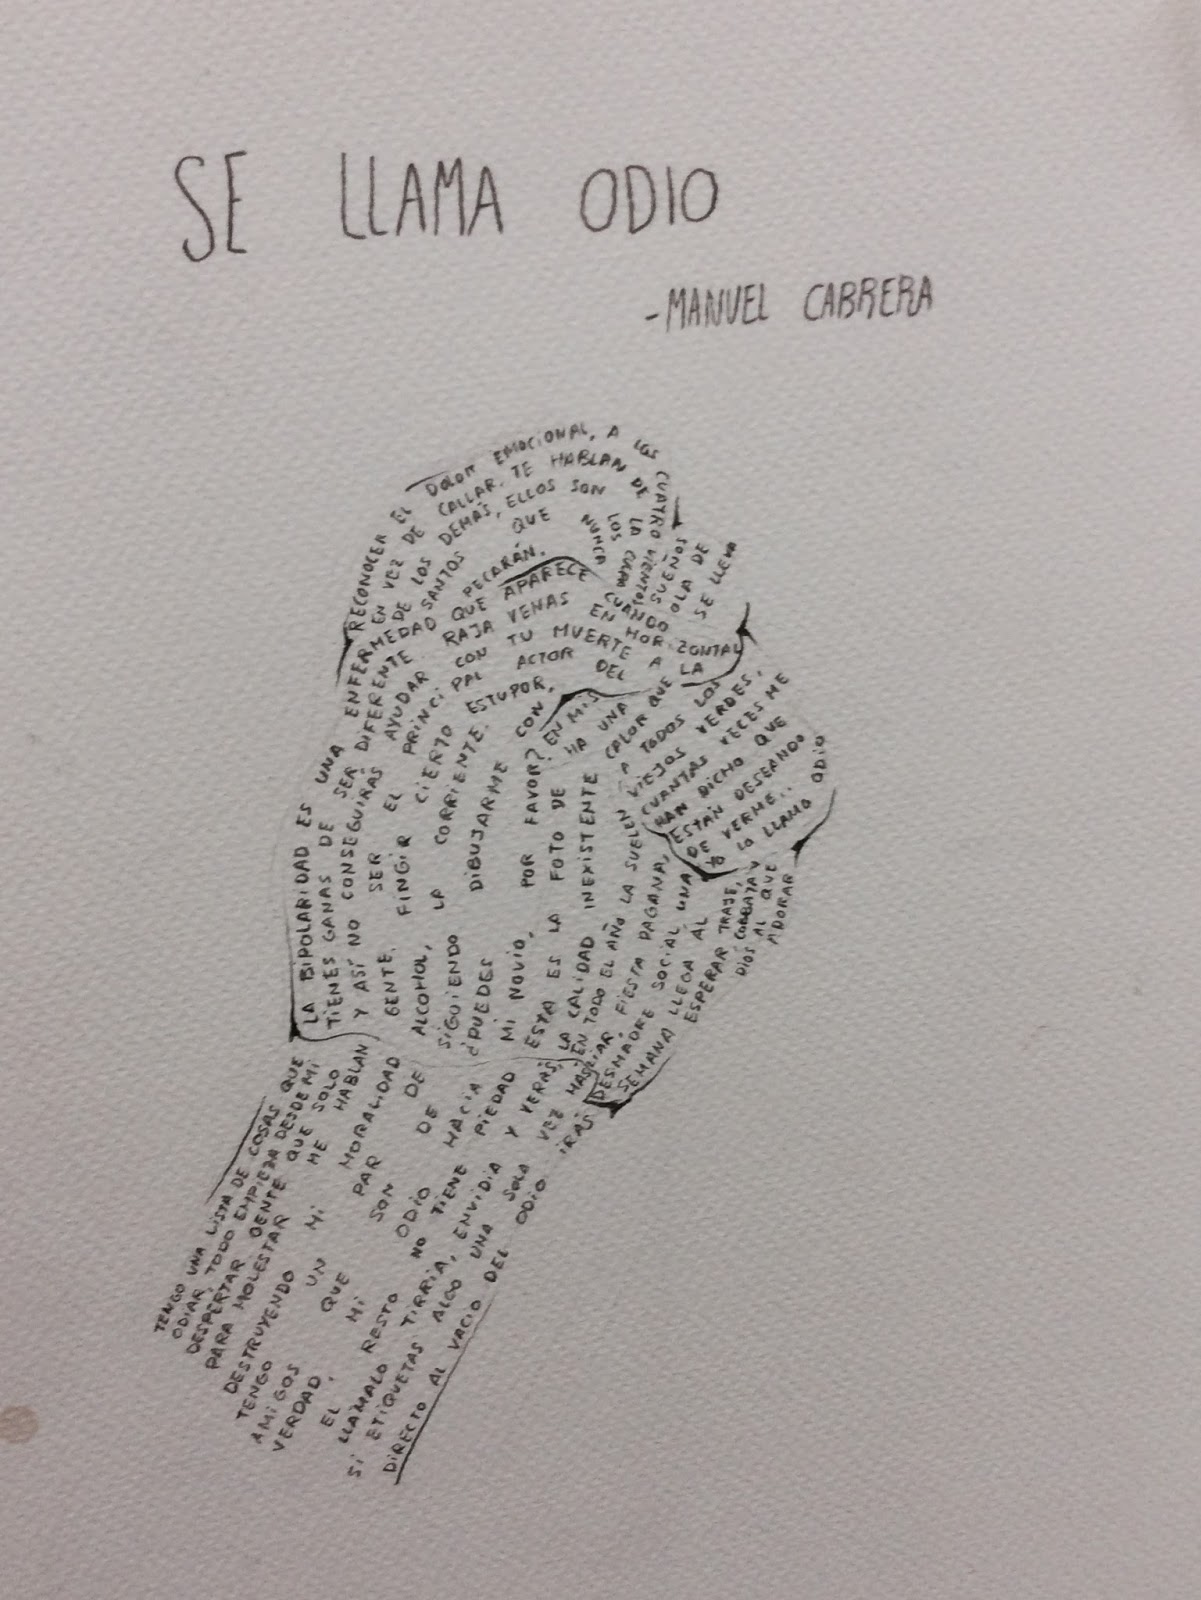 SE LLAMA ODIO
-MANUEL CABRERA
TENGO UNA LISTA DE COSAS QUE
ODIAR, TODO EMPIEZA DESDE MI
DESPERTAR GENTE QUE SOLO
PARA MOLESTAR ME HABLAN
DESTRUYENDO MI MORALIDAD
TENGO UN PAR DE
AMIGOS QUE SON DE
VERDAD, MI ODIO HACIA
EL RESTO NO TIENE PIEDAD
LLÁMALO TIRRIA, ENVIDIA Y VERÁS,
SI ETIQUETAS ALGO UNA SOLA VEZ MÁS, IRÁS
DIRECTO AL VACIO DEL ODIO
RECONOCER EL DOLOR EMOCIONAL, A LOS CUATRO VIENTOS
EN VEZ DE CALLAR. TE HABLAN DE LA CURA
DE LOS DEMÁS, ELLOS SON LOS
SANTOS QUE NUNCA
PECARÁN.
LA BIPOLARIDAD ES UNA ENFERMEDAD QUE APARECE CUANDO
TIENES GANAS DE SER DIFERENTE. RAJA VENAS EN HORIZONTAL
Y ASÍ NO CONSEGUIRÁS AYUDAR CON TU MUERTE A LA
GENTE. SER EL PRINCIPAL ACTOR DEL
ALCOHOL, FINGIR CIERTO ESTUPOR,
SIGUIENDO LA CORRIENTE.
¿PUEDES DIBUJARME CON
MI NOVIO, POR FAVOR?
ESTA ES LA FOTO DE
LA CALIDAD INEXISTENTE
EN MIS SUEÑOS
HA UNA OLA DE
CALOR QUE SE LLEVA
A TODOS LOS
VIEJOS VERDES,
CUANTAS VECES ME
HAN DICHO QUE
ESTÁN DESEANDO
DE VERME..
YO LO LLAMO ODIO
EN TODO EL AÑO LA SUELEN
FIESTA PAGANA,
DESMADRE SOCIAL UNA
SEMANA LLEGA AL
ESPERAR TRAJE,
CORBATA Y
DIOS AL QUE
ADORAR